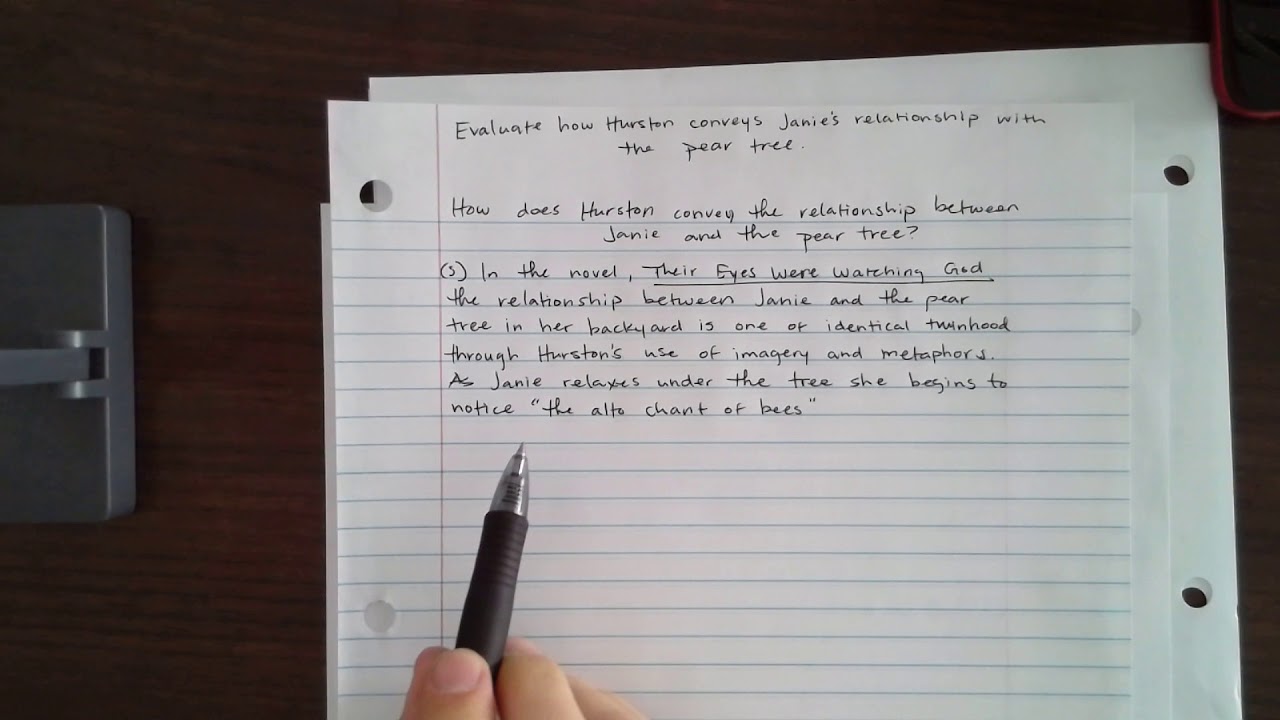 Evaluate how Hurston conveys Janie's relationship with
the pear tree.
How does Hurston convey the relationship between
Janie and the pear tree?
(S) In the novel, Their Eyes Were Watching God
the relationship between Janie and the pear
tree in her backyard is one of identical twinhood
through Hurston's use of imagery and metaphors.
As Janie relaxes under the tree she begins to
notice "the alto chant of bees"